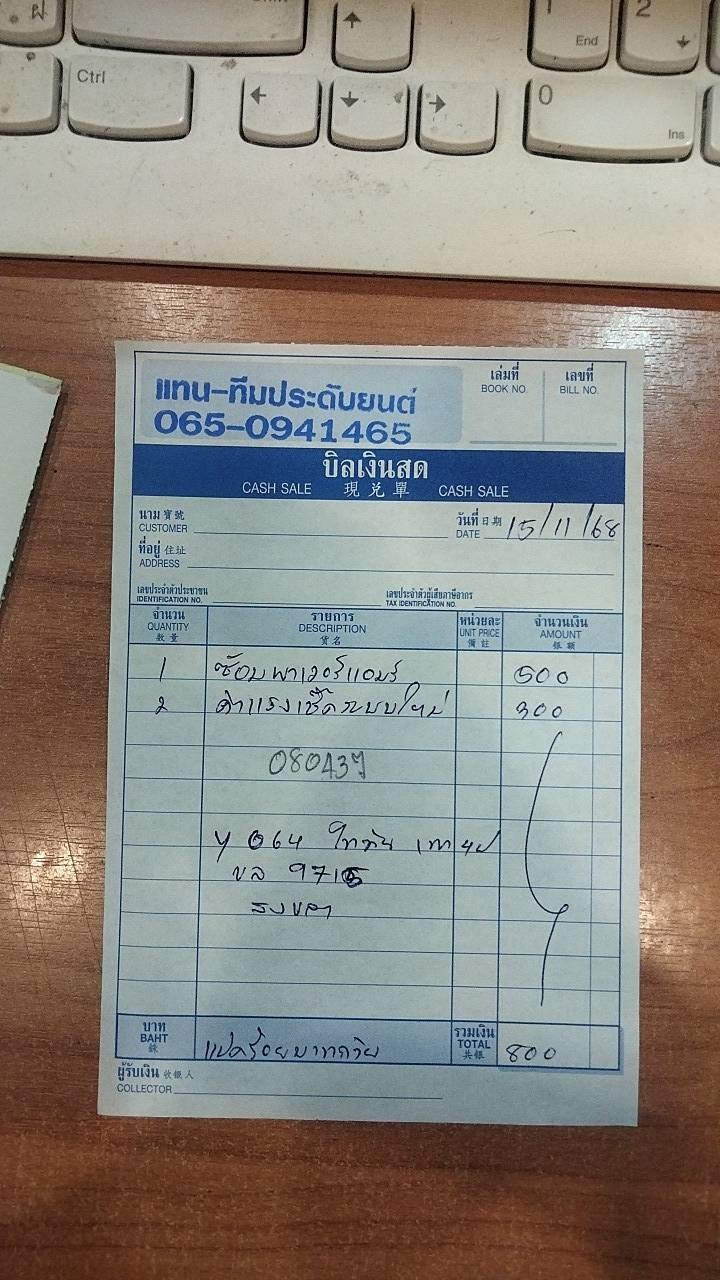 ฝ
Ctrl
↑
←
↓
→
1
End
2
↓
0
Ins
แทน-ทีมประดับยนต์
065-0941465
เล่มที่
BOOK NO.
เลขที่
BILL NO.
บิลเงินสด
CASH SALE 現兌單 CASH SALE
นาม 寶號
CUSTOMER
วันที่ 日期
DATE 15/11/68
ที่อยู่ 住址
ADDRESS
เลขประจำตัวประชาชน
IDENTIFICATION NO.
เลขประจำตัวผู้เสียภาษีอากร
TAX IDENTIFICATION NO.
จำนวน
QUANTITY
數量
รายการ
DESCRIPTION
貨名
หน่วยละ
UNIT PRICE
備註
จำนวนเงิน
AMOUNT
銀額
1 ซ่อมพาเวอร์แอมร์ 500
2 ค่าแรงเช็คระบบใหม่ 300
080437
y 064
ขล 9715
สงขลา
บาท
BAHT
銖
แปดร้อยบาทถ้วน
รวมเงิน
TOTAL
共銀
800
ผู้รับเงิน 收銀人
COLLECTOR